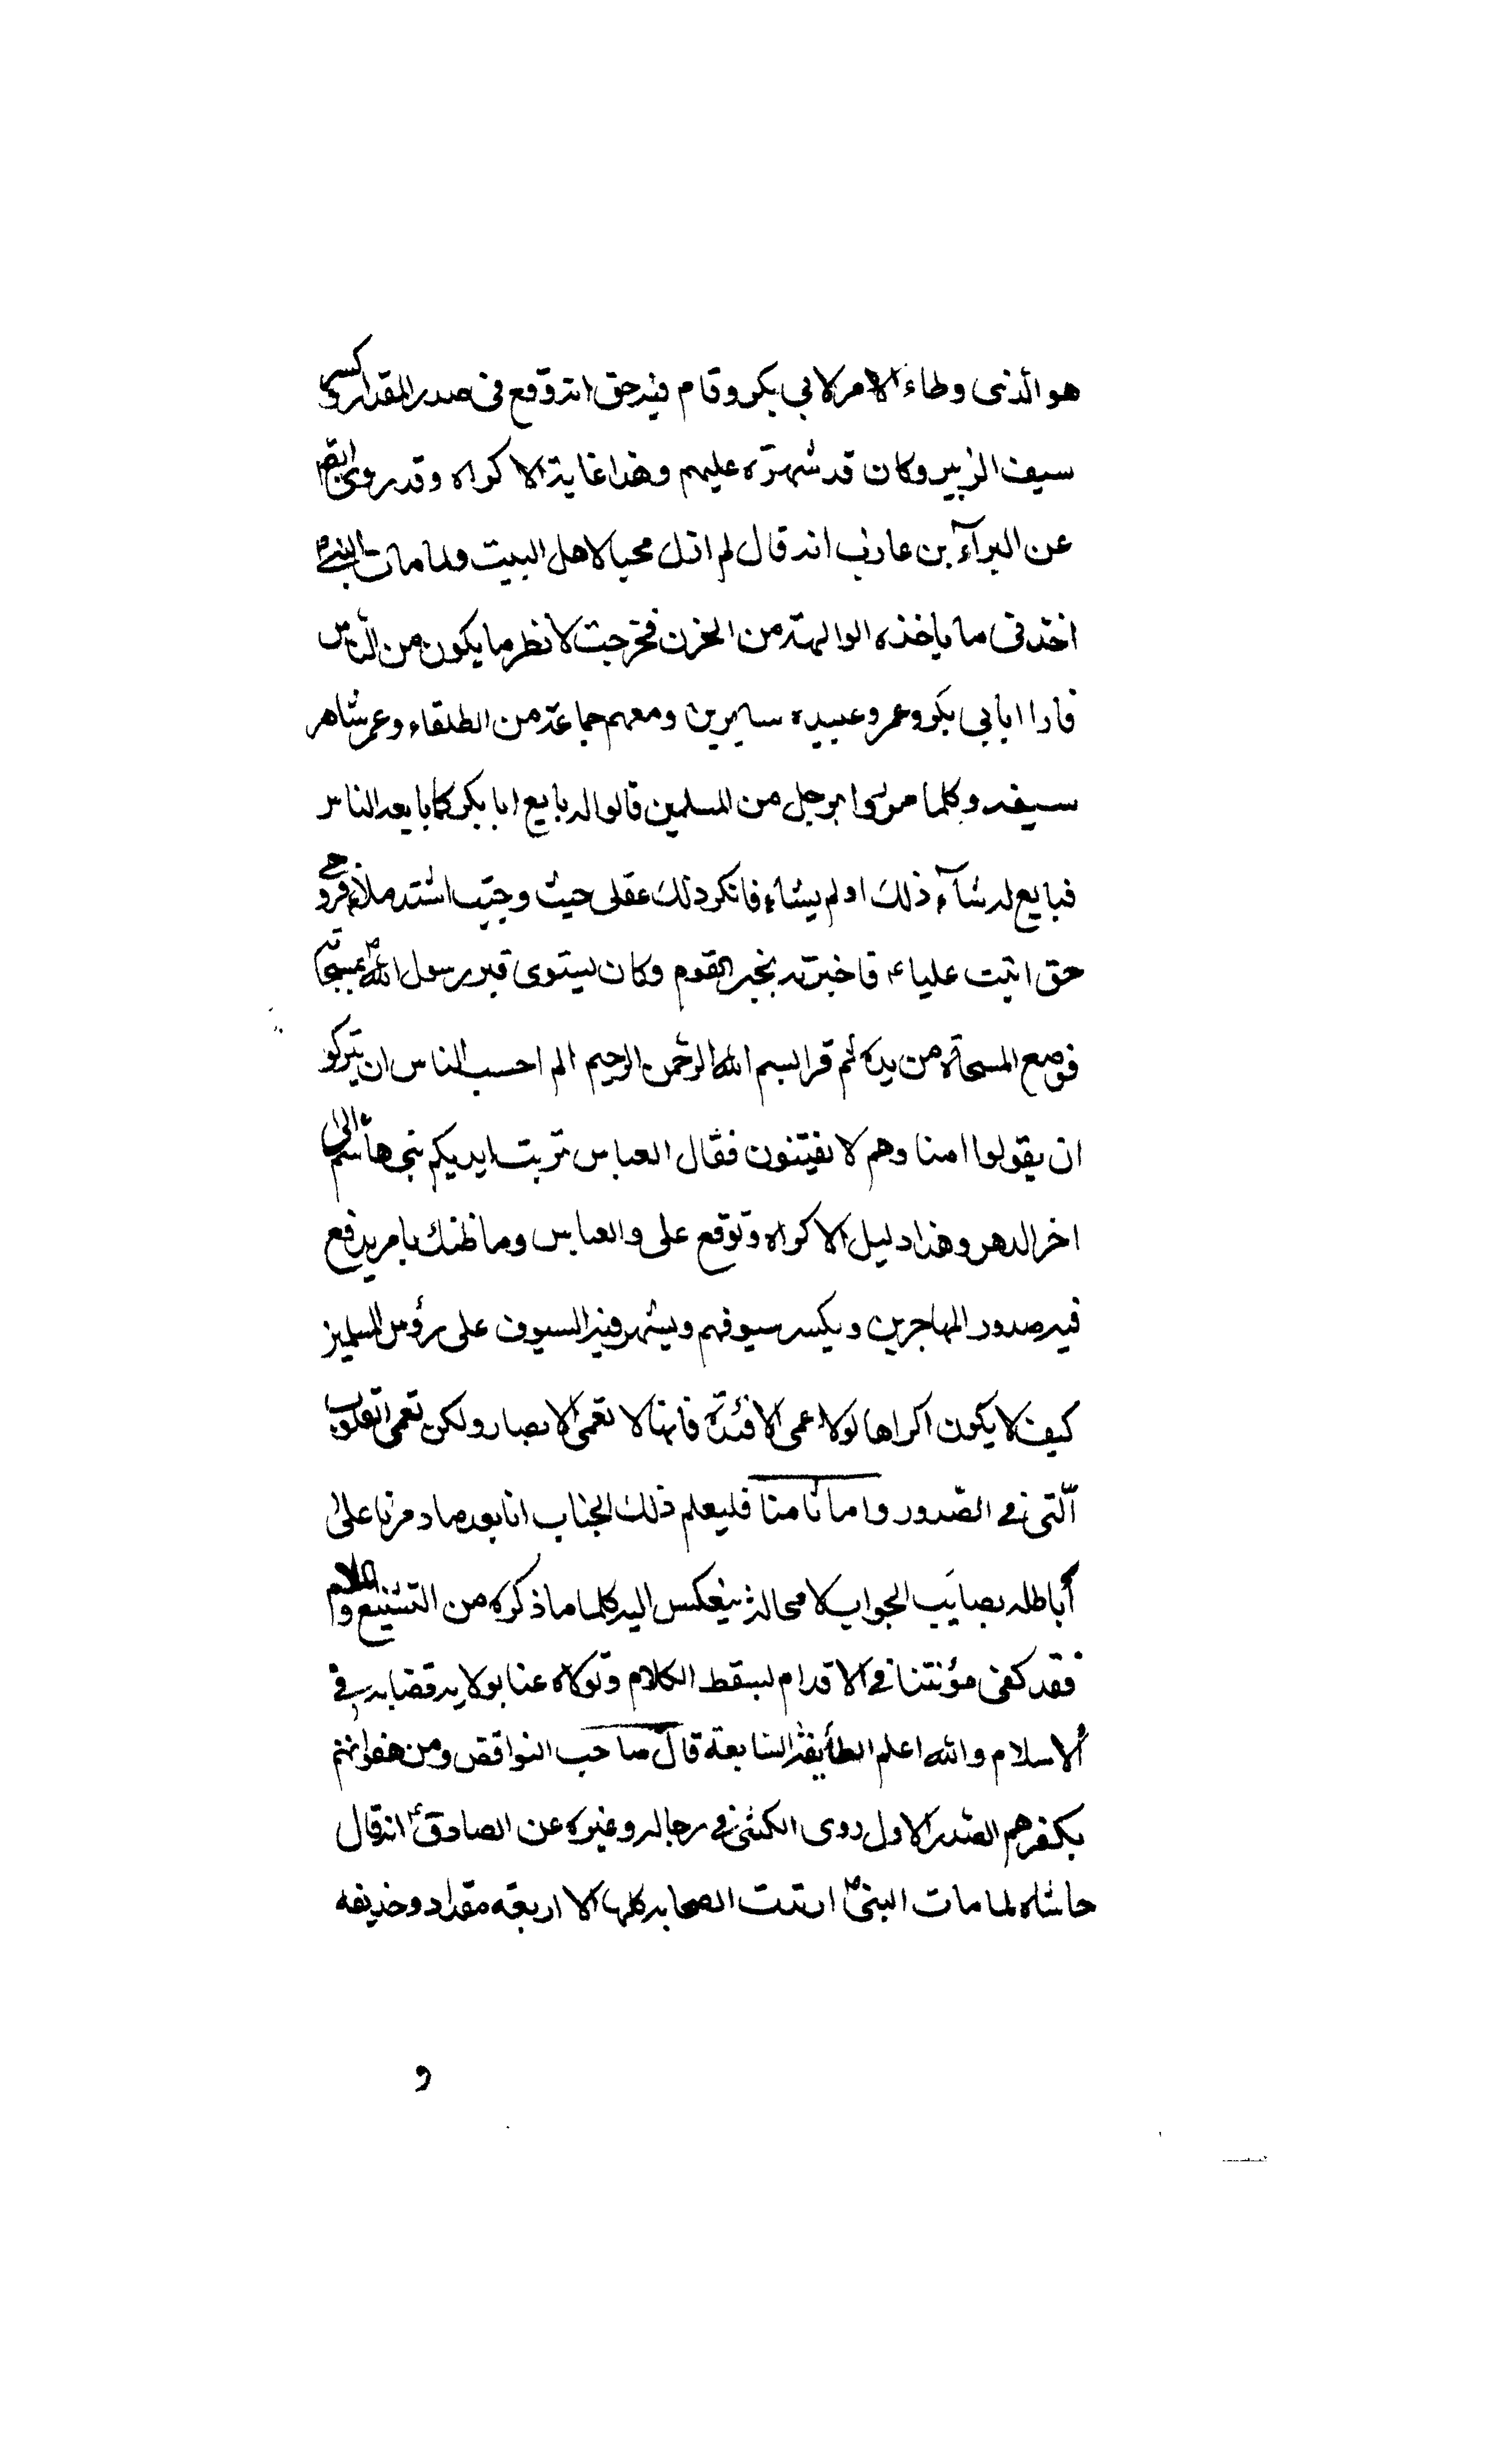 هو الذی وطاء الامر لابی بکر وقام فیه حتی انه وقع فی صدر المقداد وکسر
سیف الزبیر وکان قد شهره علیهم وهذا غایة الاکراه وقد روی ایضا
عن البرآء بن عازب انه قال لم ازل محبا لاهل البیت ولما مات النبی ص
اخذنی ما یاخذه الوالهة من الحزن فخرجت لانظر ما یکون من الناس
فاذا ابابی بکر وعمر وعبیده سایرین ومعهم جماعة من الطلقاء وعمر شاهر
سیفه وکلما مروا برجل من المسلمین قالوا له بایع ابا بکر کما بایعه الناس
فبایع له شآء ذلک او لم یشاء فانکر ذلک عقلی حیث وجئت اشتد
حتی اتیت علیا ع فاخبرته بخبر القوم وکان یستوی قبر رسول الله ص بمسحاة
فوضع المسحاة من یده ثم قرا بسم الله الرحمن الرحیم الم احسب الناس ان یترکو
ان یقولوا امنا وهم لا یفتنون فقال العباس تربت ایدیکم بنی هاشم الی
اخر الدهر وهذا دلیل الاکراه وتوقع علی والعباس وما ظنک بامر یدفع
فیه صدور المهاجرین ویکسر سیوفهم ویشهر فیه السیوف علی رؤس المسلمین
کیف لا یکون اکراها لولا عمی الافئدة فانها لا تعمی الابصار ولکن تعمی القلوب
الّتی فی الصّدور واما ثامنا فلیعلم ذلک الجناب انا بعد ما دمرنا علی
أباطله بصایب الجواب لا محالة ینعکس الیه کلما ما ذکره من التشنیع والملام
فقد کفی مؤنتنا فی الاقدام لبسقط الکلام وتولاه عنا بولایة قضایه فی
الاسلام والله اعلم الطایفة السابعة قال صاحب النواقض ومن هفواتهم
بکفرهم الصدر الاول روی الکشی فی رجاله وغیره عن الصادق ع انه قال
حاشاه لما مات النبی ص ارتدت الصحابه کلها الا اربعة مقداد وحذیفه
و